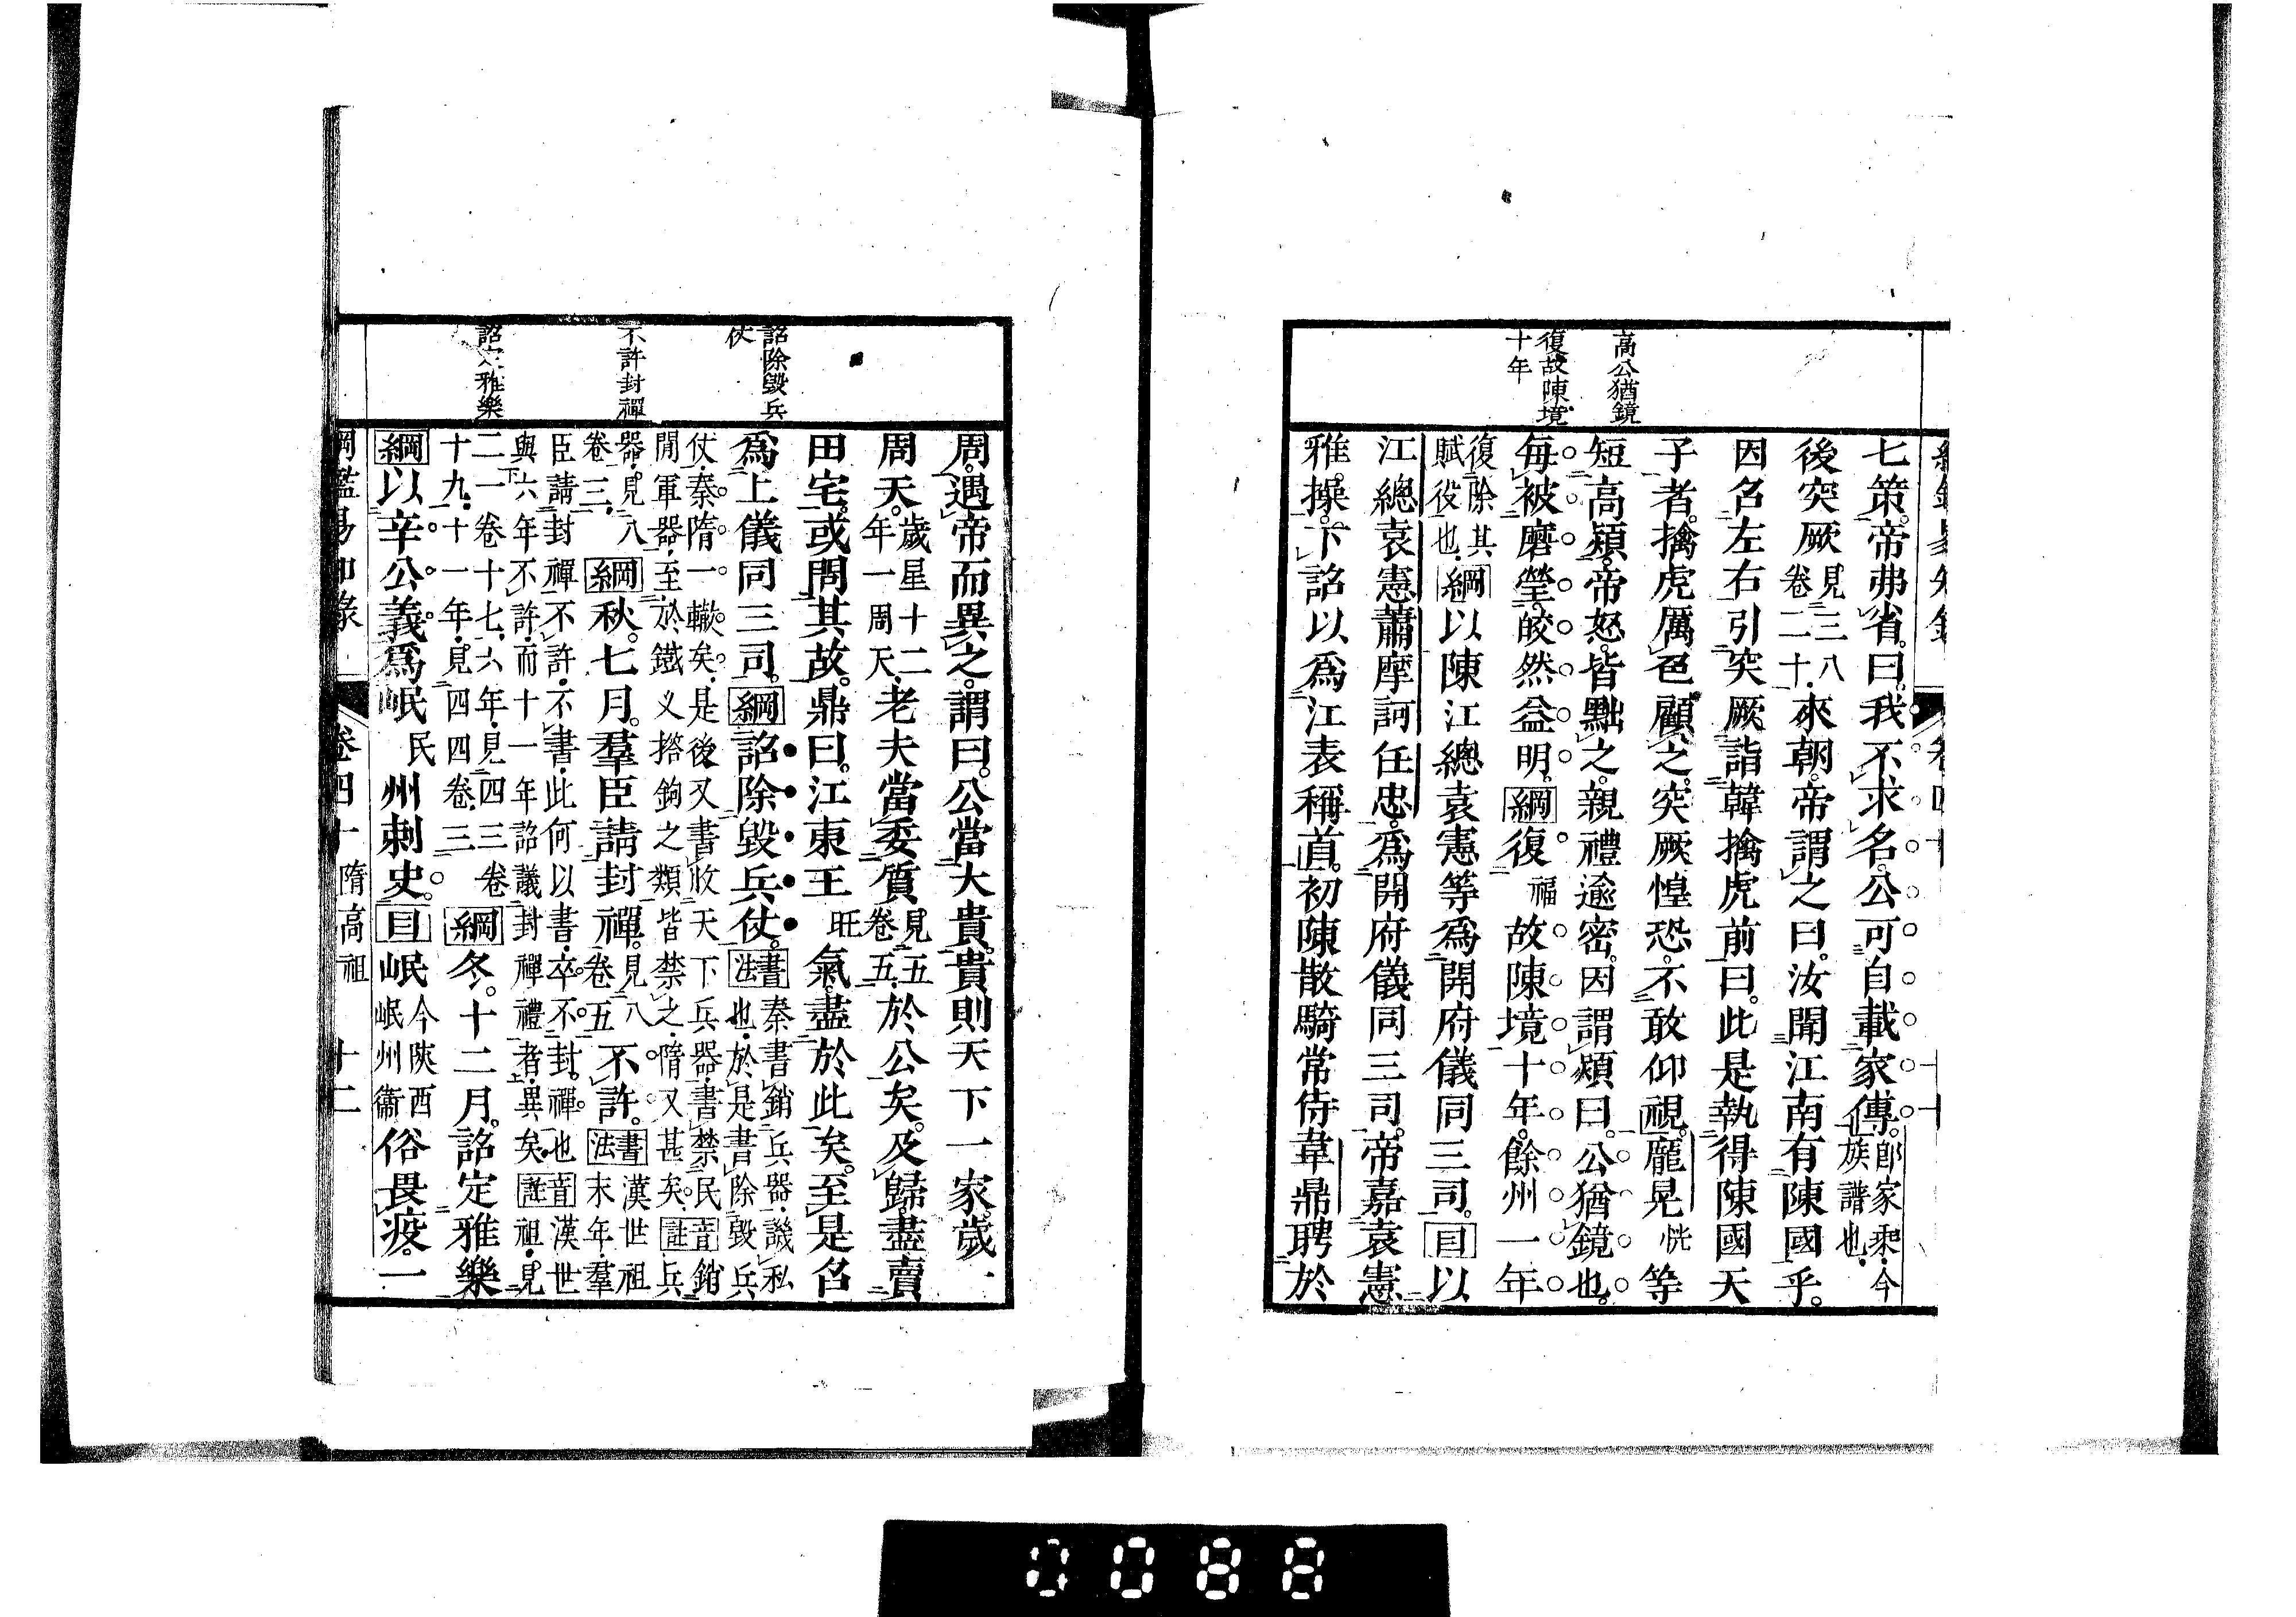 高公猶鏡
復故陳境
十年
七策。帝弗省。曰。我不求名。公可自載家傳。卽家乘今族譜也。
後突厥見三八卷二十來朝。帝謂之曰。汝聞江南有陳國天子乎。
因名左右引突厥詣韓擒虎前曰。此是執得陳國天
子者。擒虎厲色顧之。突厥惶恐。不敢仰視。龐晃恍等
短高熲。帝怒。皆黜之。親禮逾密。因謂熲曰。公猶鏡也。
每被磨瑩。皎然益明。綱復福故陳境十年。餘州一年
復除其賦役也。綱以陳江總袁憲等爲開府儀同三司。目以
江總袁憲蕭摩訶任忠。爲開府儀同三司。帝嘉袁憲
雅操。下詔以爲江表稱首。初陳散騎常侍韋鼎聘於
詔除毀兵
仗
不許封禪
詔定雅樂
周。遇帝而異之。謂曰。公當大貴。貴則天下一家。歲一
周天。歲星十二年一周天。老夫當委質見五卷五於公矣。及歸。盡賣
田宅。或問其故。鼎曰。江東王旺氣盡於此矣。至是召
爲上儀同三司。綱詔除毀兵仗。書法秦書銷兵器。譏私也。於是書除毀兵
仗。秦隋一轍矣。是後又書收天下兵器。書禁民間軍器。至於鐵义搭鉤之類。皆禁之。隋又甚矣。音註銷兵
器。見八卷三。綱秋。七月。羣臣請封禪。見八卷五不許。書法漢世祖末年。羣
臣請封禪。不許。不書。此何以書。卒不封禪也。與六年不許。而十一年詔議封禪禮者。異矣。音註漢世祖。見
二一卷十七。六年。見四三卷十九。十一年。見四四卷三。綱冬。十二月。詔定雅樂
綱以辛公義爲岷民州刺史。目岷今陝西岷州衞俗畏疫。一
綱鑑易知錄 卷四十 隋高祖 十二